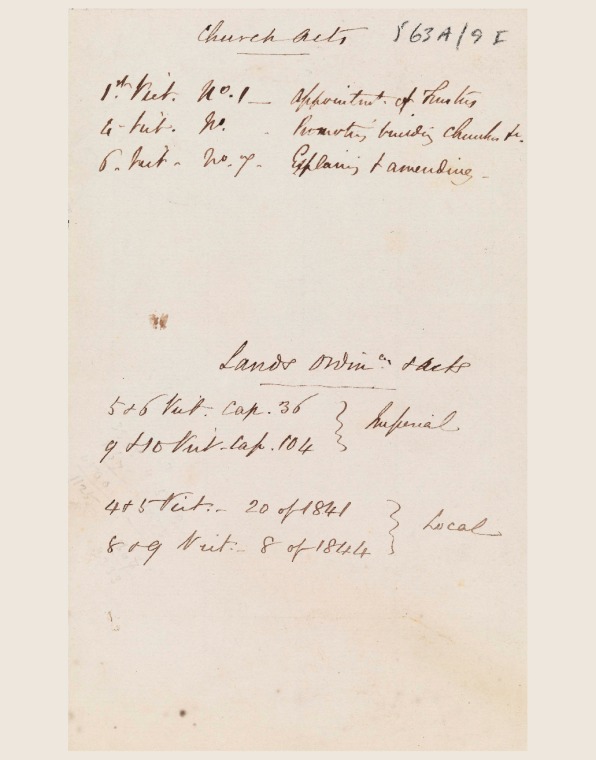 Church Acts 563A/9 I
1st Vict. No. 1 — Appointmt. of Trustees
4 - Vict. No. - Promoting building Churches &c.
6. Vict - No. 7. Explaining & amending -
Lands Ordinces & Acts
5 & 6 Vict. Cap. 36 } Imperial
9 & 10 Vict. Cap. 104
4 & 5 Vict. - 20 of 1841 } Local
8 & 9 Vict: - 8 of 1844